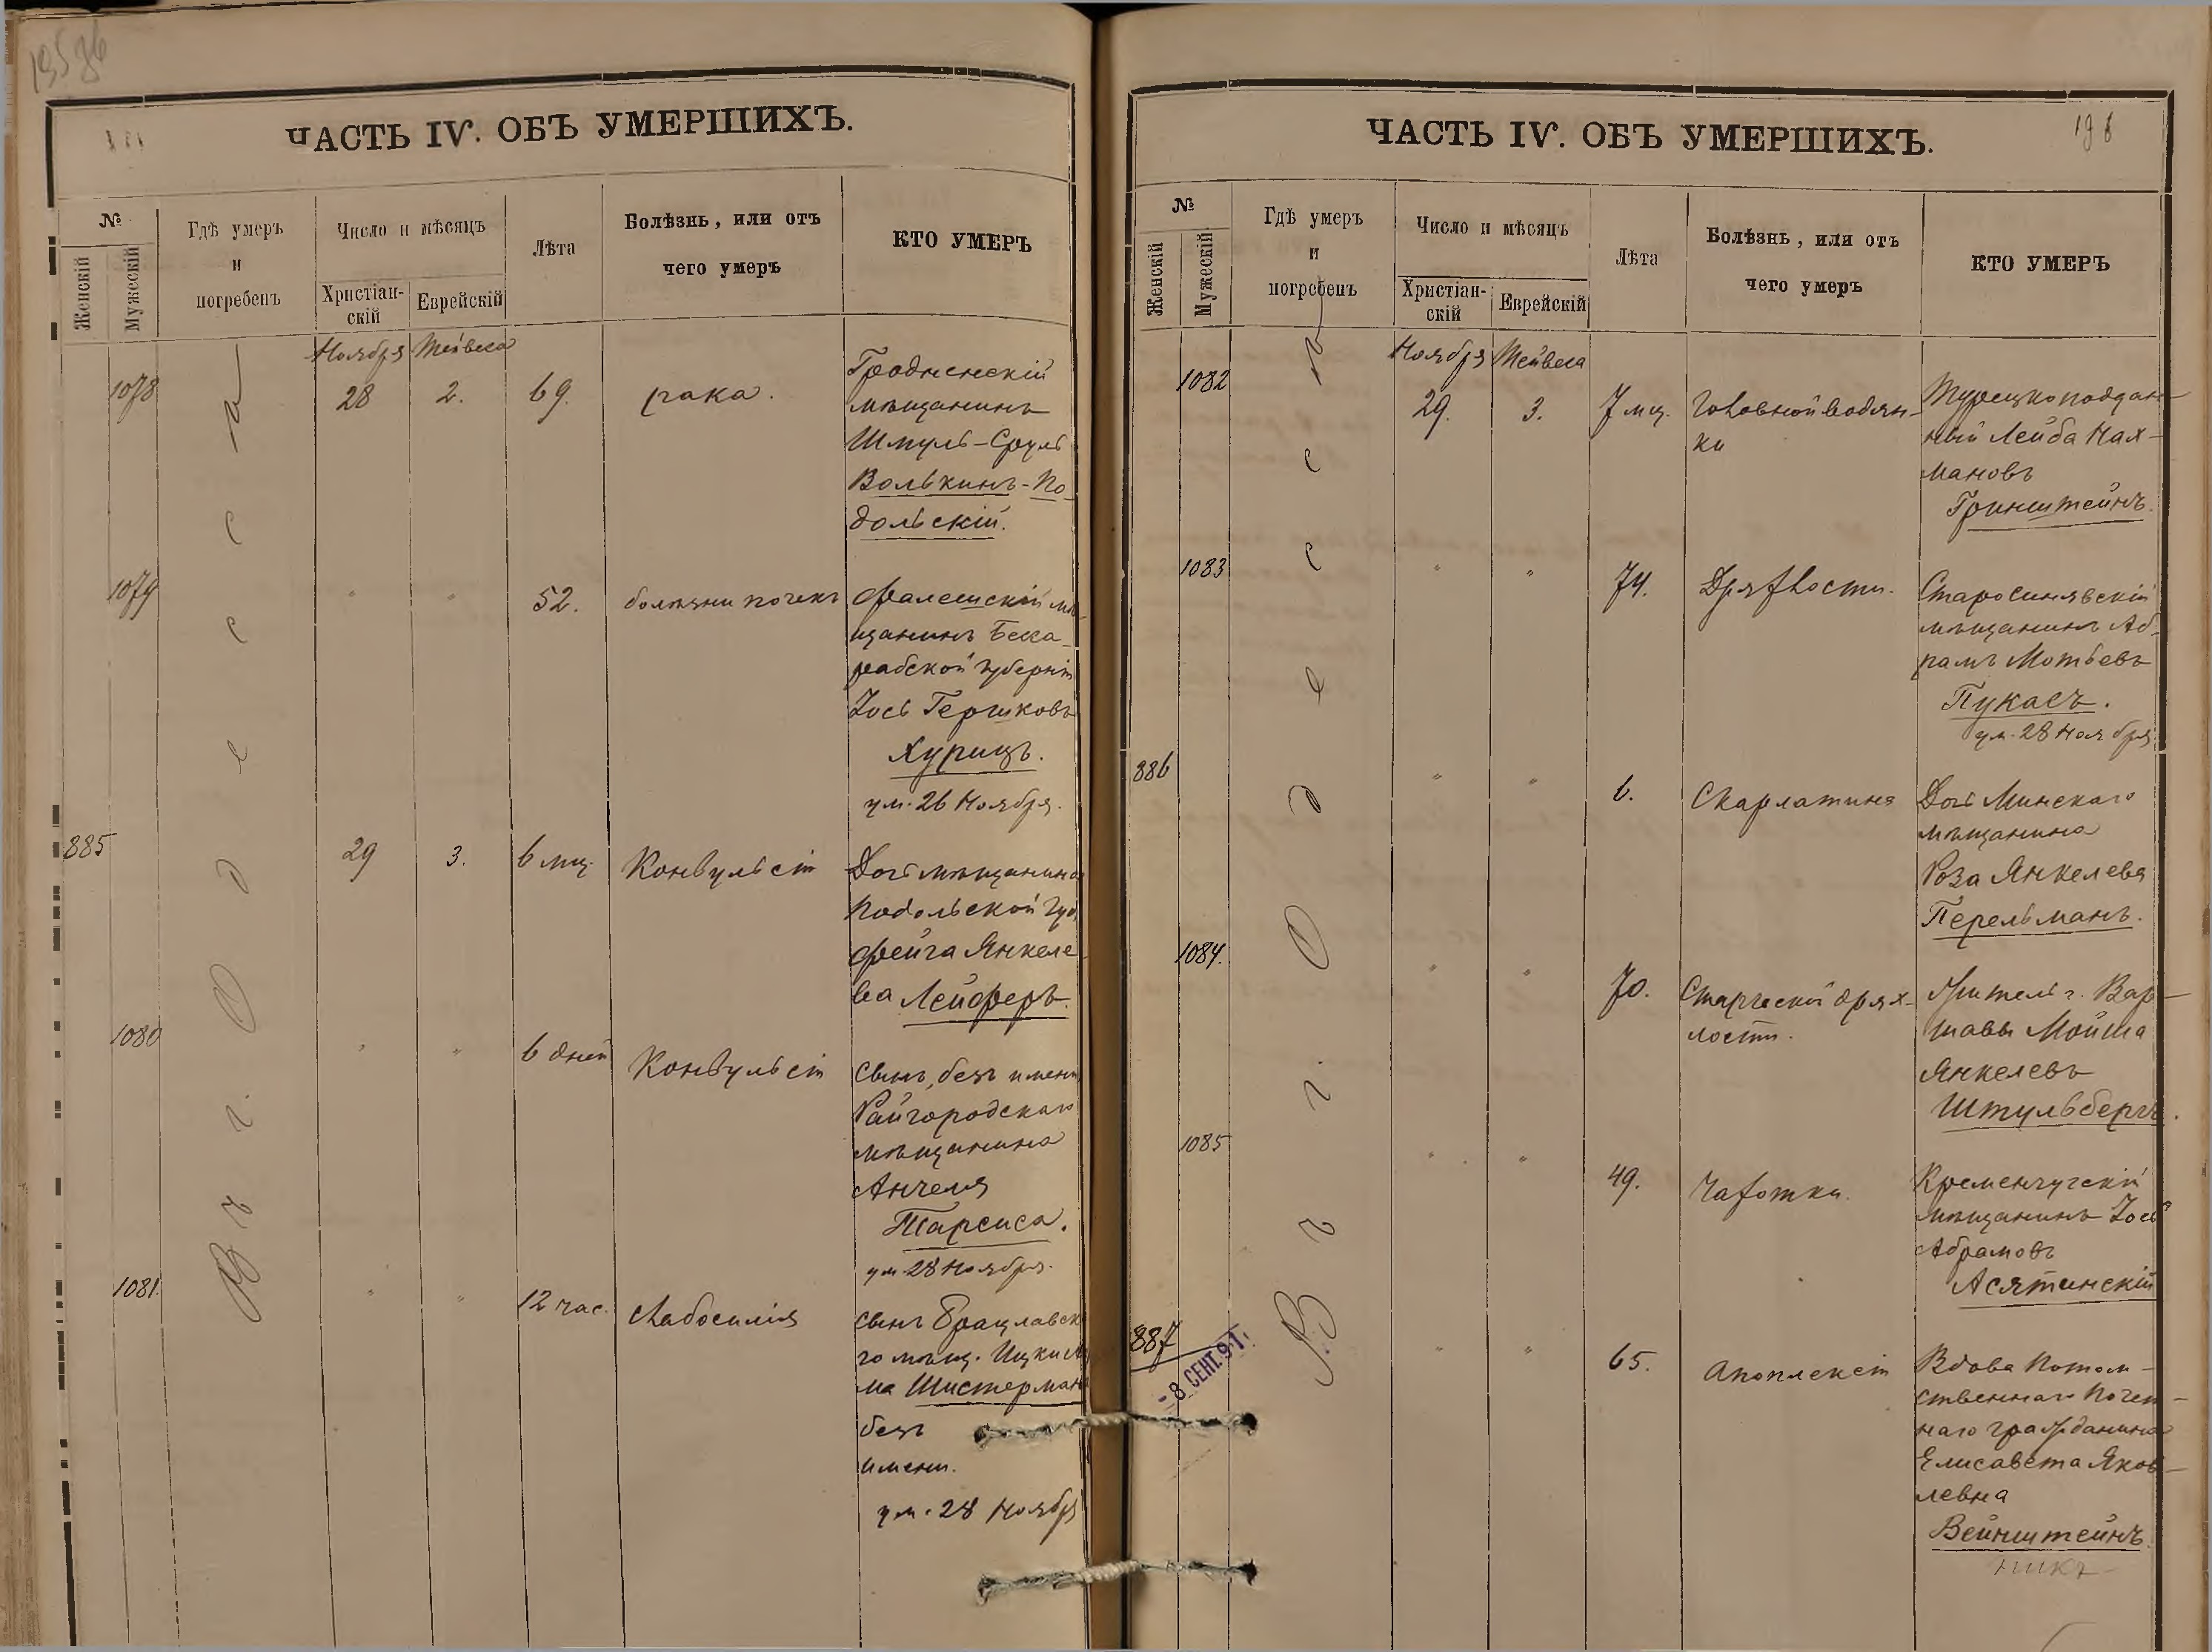 ЧАСТЬ IV. ОБЪ УМЕРШИХЪ.
№
Женскій
Мужескій
Гдѣ умеръ
и
погребенъ
Число и мѣсяцъ
Христіан-
скій
Еврейскій
Лѣта
Болѣзнь, или отъ
чего умеръ
КТО УМЕРЪ
Въ г. Одессѣ
Ноября Тейвеса
1078 28 2. 69. рака.
Гродненскій
мѣщанинъ
Шмуль-Сруль
Волькинъ-По-
дольскій.
1079 " " 52. болѣзни почекъ
Фалешскій мѣ-
щанинъ Бесса-
рабской губерніи
Іось Гершковъ
Хурицъ.
ум. 26 Ноября.
885 29 3. 6 мц. Конвульсіи
Дочь мѣщанина
Подольской губ.
Фейга Янкеле-
ва Лейферъ.
1080 " " 6 дней Конвульсіи
Сынъ, безъ имени
Райгородскаго
мѣщанина
Анчеля
Тарсиса.
ум 28 Ноября.
1081. " " 12 час. слабосилія
сынъ Брацлавска
го мѣщ. Ицки
Шистерман
безъ
имени.
ум. 28 Ноября
ЧАСТЬ IV. ОБЪ УМЕРШИХЪ.
198
№
Женскій
Мужескій
Гдѣ умеръ
и
погребенъ
Число и мѣсяцъ
Христіан-
скій
Еврейскій
Лѣта
Болѣзнь, или отъ
чего умеръ
КТО УМЕРЪ
Въ г. Одессѣ
Ноября Тейвеса
1082 29. 3. 7 мц. Головной водян-
ки
Турецкоподдан-
ный Лейба Нах-
мановъ
Гринштейнъ.
1083 " " 74. Дряхлости.
Старосинявскій
мѣщанинъ Аб-
рамъ Мотьевъ
Пукасъ.
ум. 28 Ноября
886 " " 6. Скарлатина
Дочь Минскаго
мѣщанина
Роза Янкелева
Перельманъ.
1084. " " 70. Старческой дрях-
лости.
Житель г. Вар-
шавы Мойша
Янкелевъ
Штульбергъ.
1085 " " 49. Чахотки.
Кременчугскій
мѣщанинъ Іось
Абрамовъ
Асятинскій
887 " " 65. Апоплексіи
Вдова Потом-
ственнаго Почет-
наго гражданина
Елисавета Яков-
левна
Вейнштейнъ.
- 8 СЕНТ. 91.